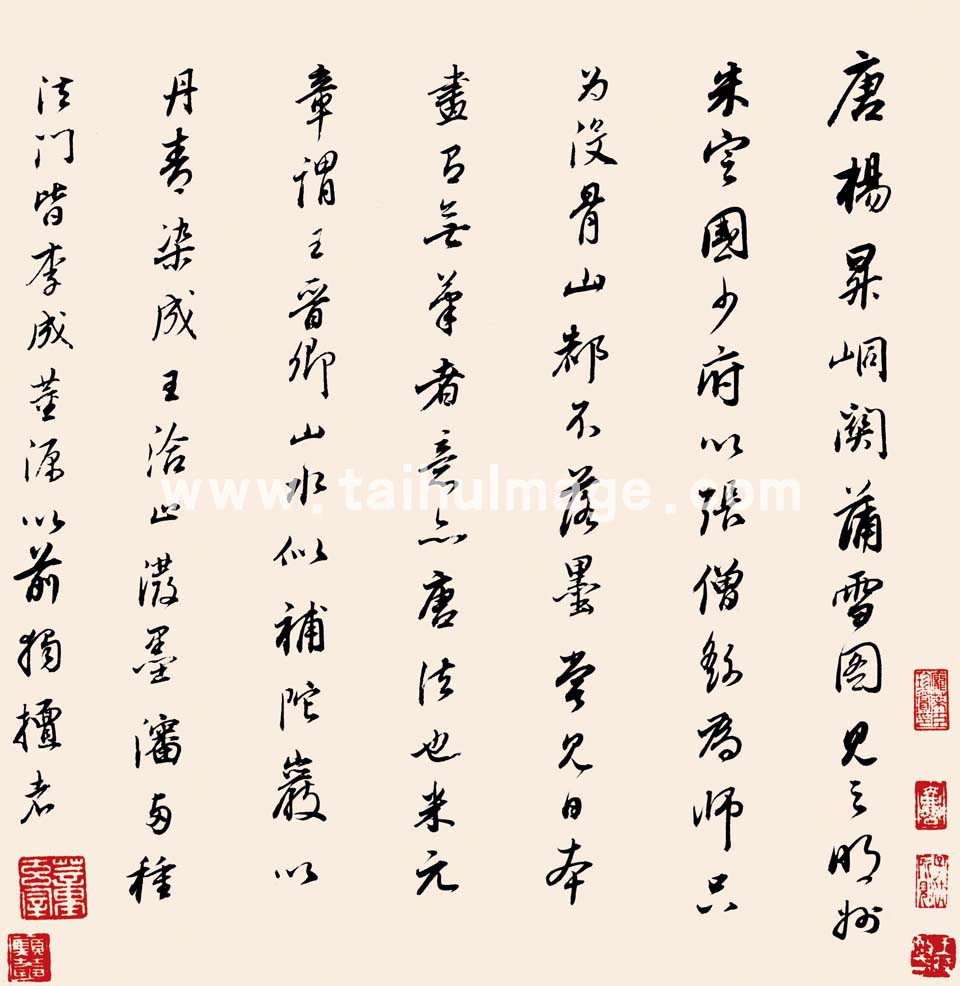 唐楊昇峒關蒲雪圖見之明州
朱定國少府以張僧繇為師只
为沒骨山都不落墨嘗見日本
畫有無筆者意亦唐法也米元
章謂王晉卿山水似補陀巖以
丹青染成王洽之潑墨瀋兩種
法門皆李成董源以前獨擅者
www.taihuImage.com